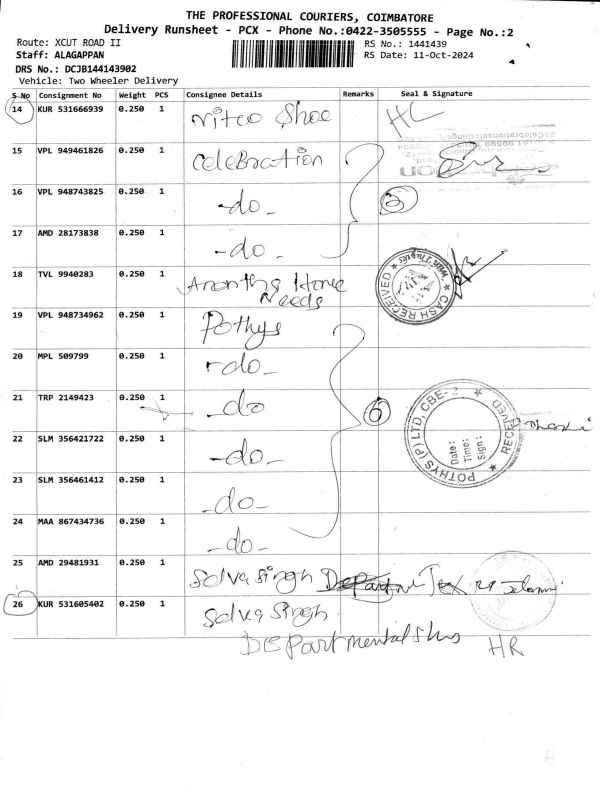 THE PROFESSIONAL COURIERS, COIMBATORE
Delivery Runsheet - PCX - Phone No.:0422-3505555 - Page No.:2
Route: XCUT ROAD II RS No.: 1441439
Staff: ALAGAPPAN RS Date: 11-Oct-2024
DRS No.: DCJB144143902
Vehicle: Two Wheeler Delivery
S No Consignment No Weight PCS Consignee Details Remarks Seal & Signature
14 KUR 531666939 0.250 1 Nitco Shoe
15 VPL 949461826 0.250 1 Celebration
16 VPL 948743825 0.250 1 -do- 3
17 AMD 28173838 0.250 1 -do-
18 TVL 9940283 0.250 1 Anantha Home Needs CASH RECEIVED
19 VPL 948734962 0.250 1 Pothys
20 MPL 509799 0.250 1 -do-
21 TRP 2149423 0.250 1 -do 6 POTHYS (P) LTD, CBE-2 RECEIVED Date: Time: Sign:
22 SLM 356421722 0.250 1 -do-
23 SLM 356461412 0.250 1 -do-
24 MAA 867434736 0.250 1 -do-
25 AMD 29481931 0.250 1 Selvasingh
26 KUR 531605402 0.250 1 Selva Singh
Departmental HR